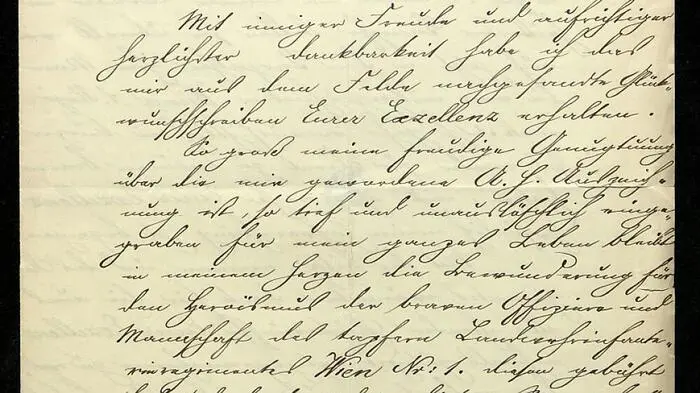 Mit inniger Freude und aufrichtiger
herzlichster dankbarkeit habe ich das
mir aus dem Felde nachgesandte Glück-
wunschschreiben Eurer Exzellenz erhalten.
So groß meine freudige Genugtuung
über die mir gewordene A. h. Auszeich-
nung ist, so tief und unauslöschlich einge-
graben für mein ganzes Leben bleibt
in meinem Herzen die Bewunderung für
den Heroismus der braven Offiziere und
Mannschaft des tapfern Landwehrinfante-
rieregimentes Wien Nr: 1. diesen gebührt